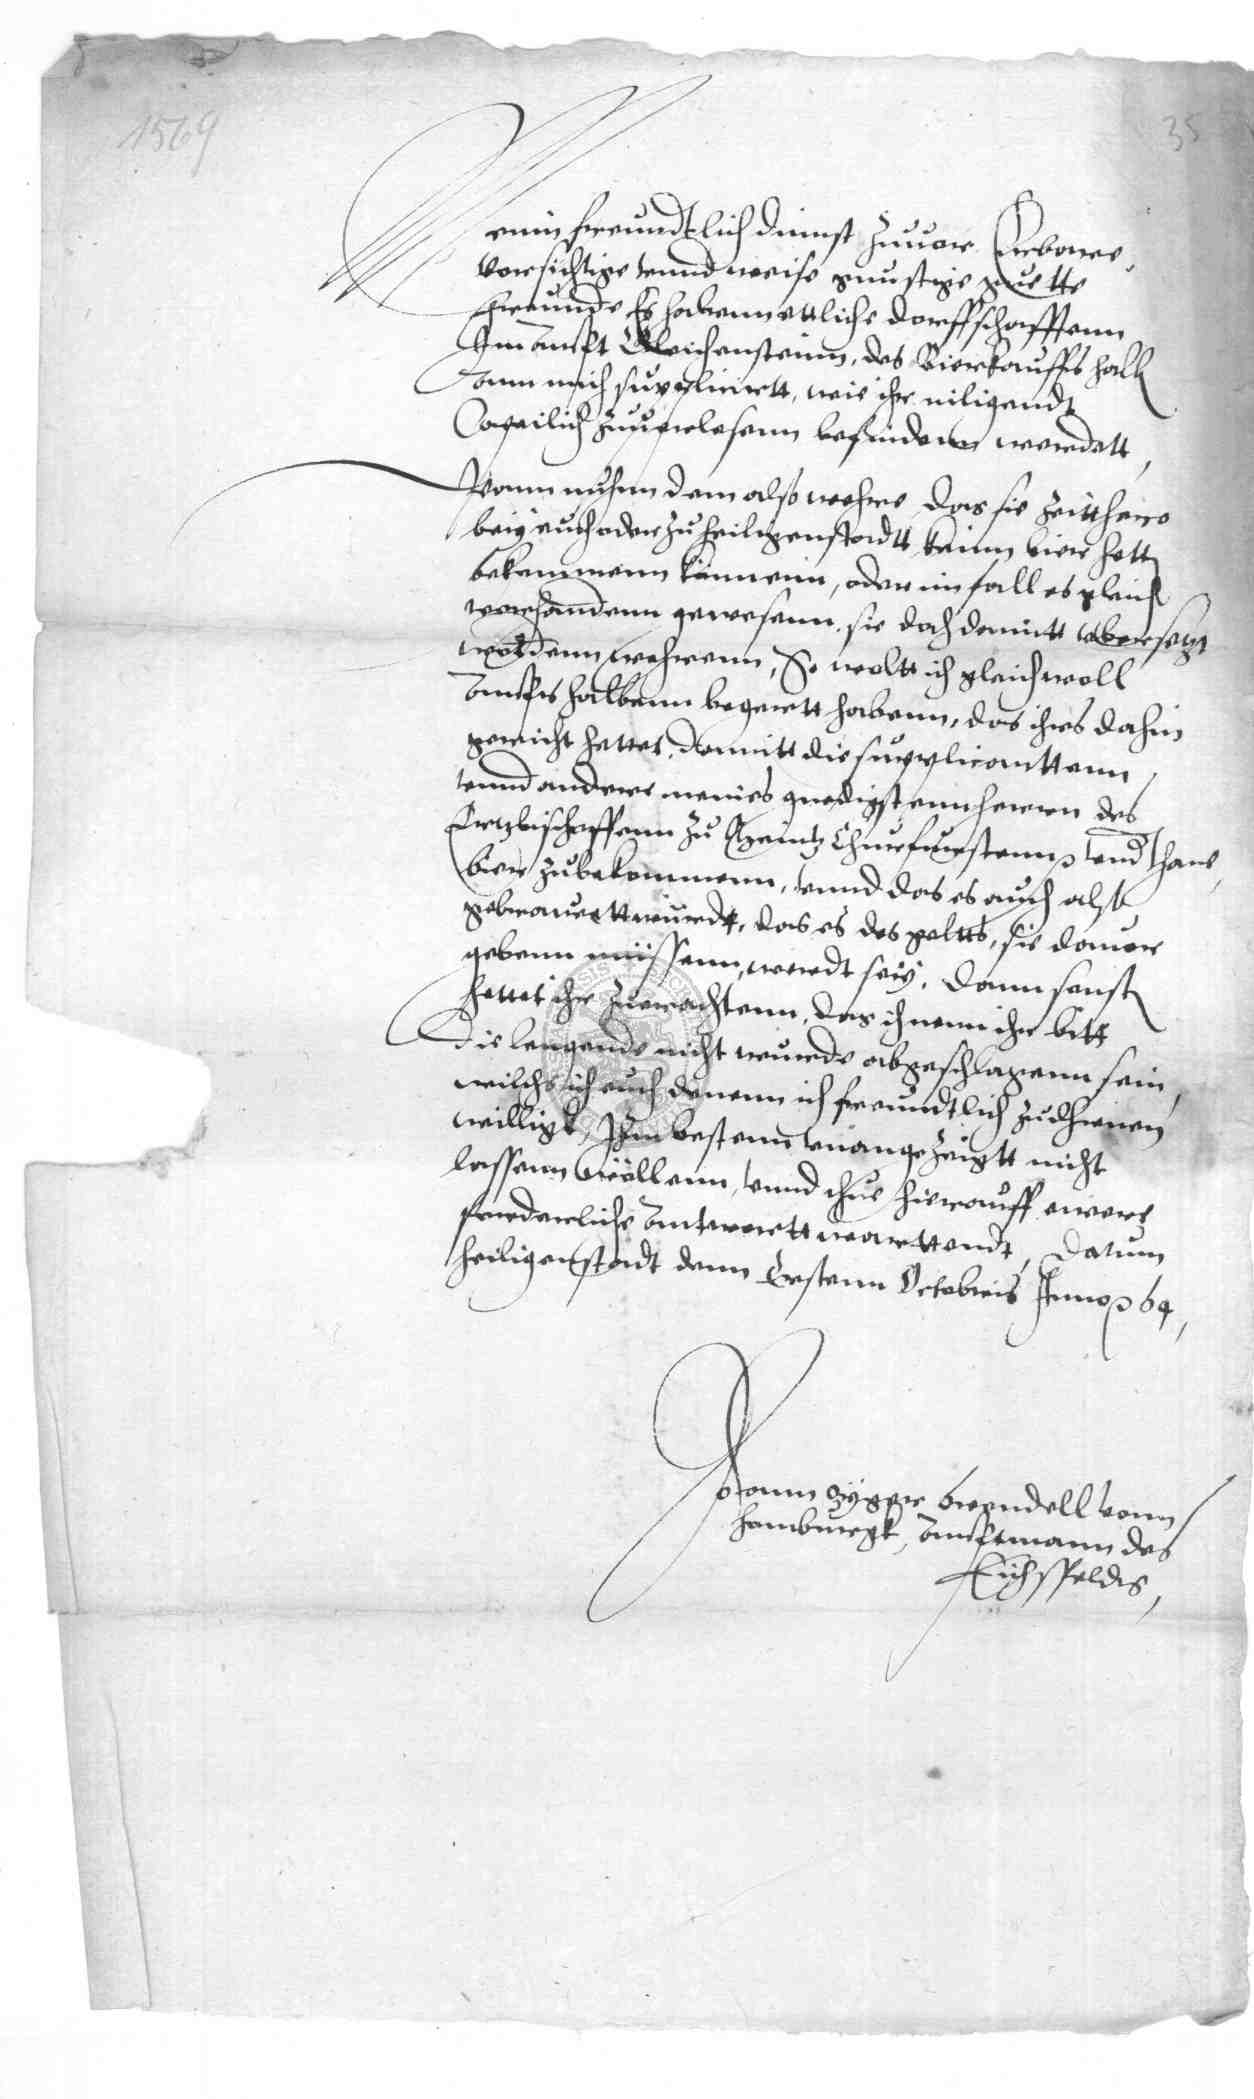 1569
35
Mein freundtlich dienst zuuor Erbare
vorsichtige vnnd weise gunstige guette
freunde Es habenn ettliche dorffschafftenn
Im Ampt Gleichenstein, des Bierkauffs halb
ann mich supplicirtt, wie ihr inligendt
zuuerlesenn befindenn werdett,
Wann nuhnn dem also wehre das sie Zeitthero
beij euch oder zu heiligenstadtt keinn bier hett
bekommenn könnenn, oder im fall es gleich
vorhandenn gewesenn, sie doch damitt vbersetzt
wordenn wehrenn, So woltt ich gleichwoll
Ampts halbenn begertt habenn, das ihr es dahin
gericht hettet, damitt die supplicanttenn
vnnd andere meines gnedigstenn herrn des
Ertzbischoffenn zu Meintz Churfurstenn vnderthane,
bier zubekommenn, vnnd das es auch also
gebrauett wurdt, das es des geltts, sie dauor
gebenn müssenn, werdt seij, Dann sonst
hettet ihr zuerachtenn, das ihnenn ihr bitt
die lengende nicht wurde abgeschlagenn sein,
wilchs ich euch denenn ich freundtlich zudhienen
willigk, Ihm bestenn vnangezeigtt nicht
lassenn wöllenn, vnnd thue hierauff ewere
furderliche Antwortt warttendt, Datum
heiligenstadt denn Erstenn Octobris Anno 64,
Johann
Brendell vonn
Homburgk, Amptmann des
Eichsfeldes,